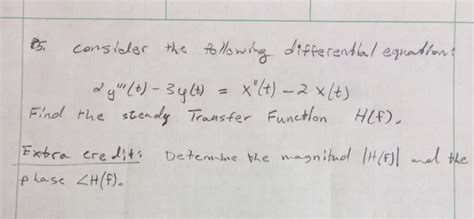 P5. consider the following differential equation:
2y'''(t) - 3y(t) = x''(t) - 2 x(t)
Find the steady Transfer Function H(f).
Extra credit: Determine the magnitud |H(f)| and the
phase ∠H(f).